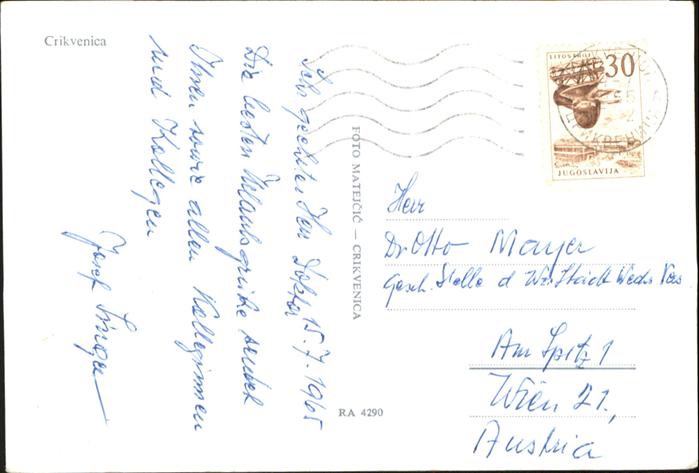 Crikvenica
Sehr geehrter Herr Doktor 15.7.1965
Die besten Urlaubsgrüße sendet
Ihnen sowie allen Kolleginnen
und Kollegen
Josef
FOTO MATEJČIĆ — CRIKVENICA
RA 4290
LITOSTROJ
30
JUGOSLAVIJA
Herr
Dr Otto Mayer
Gesch. Stelle d Wr. Städt Wechs Vers
Am Spitz 1
Wien 21.,
Austria